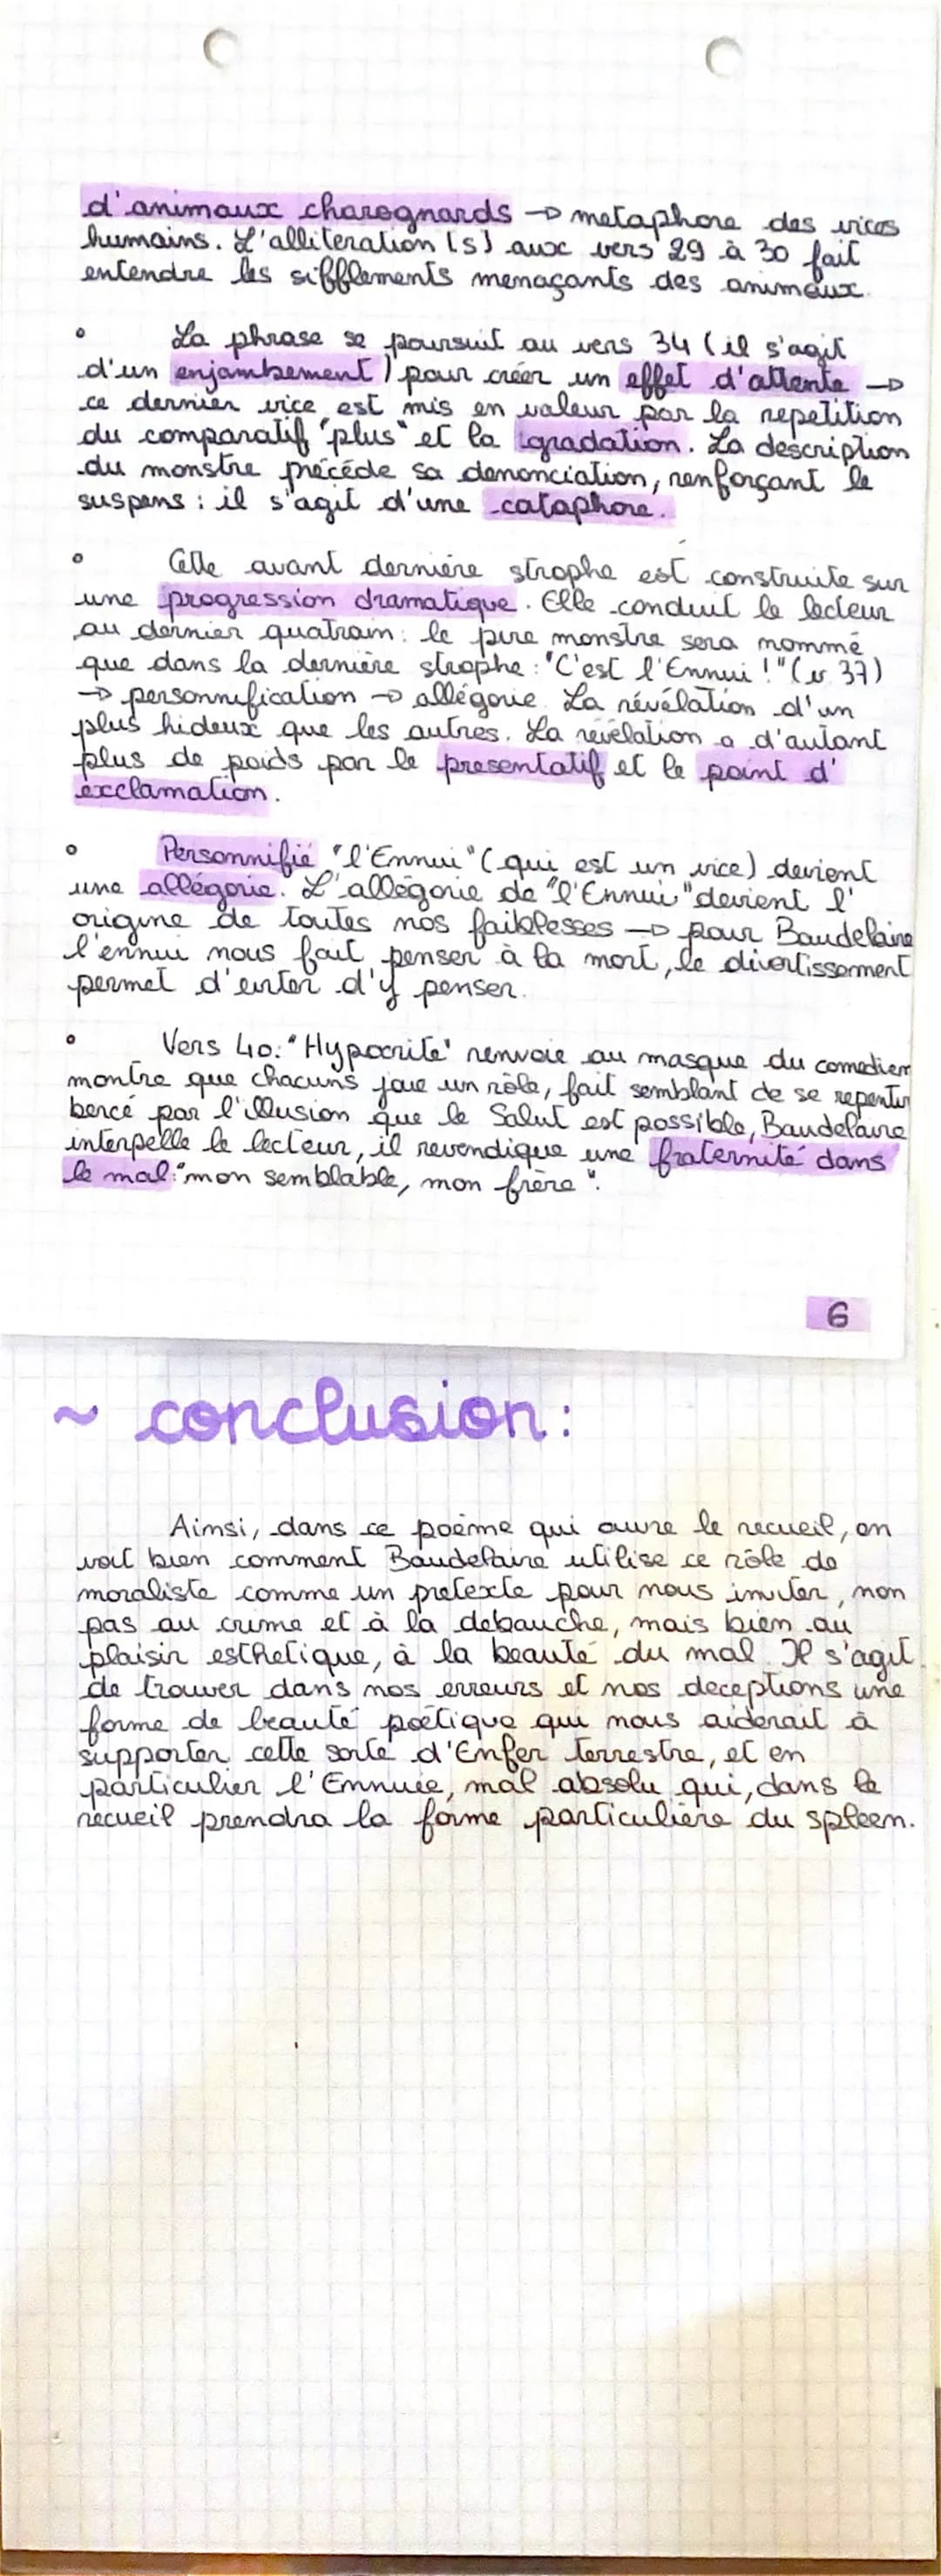 d'animaux charognards → metaphore des vices
humains. L'alliteration [s] aux vers 29 à 30 fait
entendre les sifflements menaçants des animaux.
° La phrase se poursuit au vers 34 (il s'agit
d'un enjambement) pour créer un effet d'attente →
ce dernier vice est mis en valeur par la repetition
du comparatif "plus" et la gradation. La description
du monstre précéde sa denonciation, renforçant le
suspens : il s'agit d'une cataphore.
° Cette avant dernière strophe est construite sur
une progression dramatique. Elle conduit le lecteur
au dernier quatrain : le pire monstre sera nommé
que dans la dernière strophe : "C'est l'Ennui !" (v. 37)
→ personnification → allégorie. La révélation d'un
plus hideux que les autres. La révélation a d'autant
plus de poids par le presentatif et le point d'
exclamation.
° Personnifié "l'Ennui" (qui est un vice) devient
une allégorie. L'allégorie de "l'Ennui" devient l'
origine de toutes nos faiblesses → pour Baudelaire
l'ennui nous fait penser à la mort, le divertissement
permet d'eviter d'y penser.
° Vers 40 : "Hypocrite" renvoie au masque du comedien
montre que chacuns joue un rôle, fait semblant de se repentir
bercé par l'illusion que le Salut est possible, Baudelaire
interpelle le lecteur, il revendique une fraternité dans
le mal : "mon semblable, mon frère".
6
~ conclusion :
Ainsi, dans ce poème qui ouvre le recueil, on
voit bien comment Baudelaire utilise ce rôle de
moraliste comme un pretexte pour nous inviter, non
pas au crime et à la debauche, mais bien au
plaisir esthetique, à la beauté du mal. Il s'agit
de trouver dans nos erreurs et nos deceptions une
forme de beauté poétique qui nous aiderait à
supporter cette sorte d'Enfer terrestre, et en
particulier l'Ennuie, mal absolu qui, dans le
recueil prendra la forme particulière du spleen.